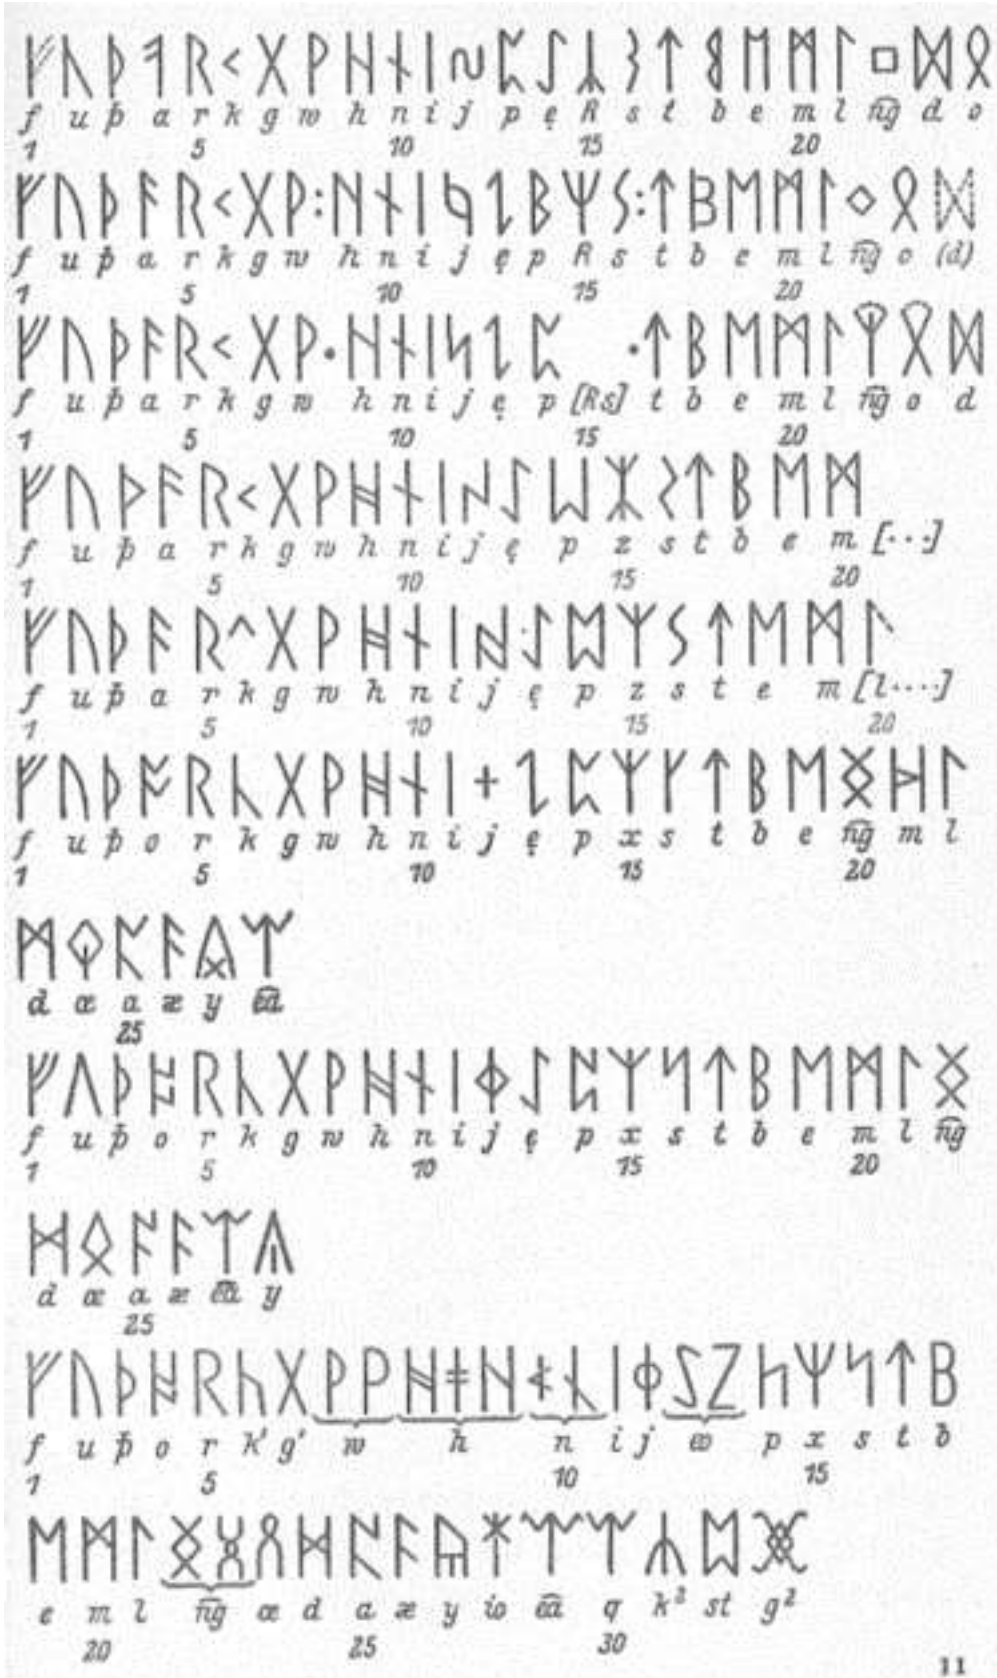 ᚠ ᚢ ᚦ ᚨ ᚱ ᚲ ᚷ ᚹ ᚺ ᚾ ᛁ ᛃ ᛈ ᛇ ᛦ ᛊ ᛏ ᛒ ᛖ ᛗ ᛚ ᛜ ᛞ ᛟ
f u þ a r k g w h n i j p ẹ R s t b e m l n͡g d o
1 5 10 15 20
ᚠ ᚢ ᚦ ᚨ ᚱ ᚲ ᚷ ᚹ : ᚺ ᚾ ᛁ ᛃ ᛇ ᛒ ᛉ ᛊ : ᛏ ᛒ ᛖ ᛗ ᛚ ᛜ ᛟ ᛞ
f u þ a r k g w h n i j ẹ p R s t b e m l n͡g o (d)
1 5 10 15 20
ᚠ ᚢ ᚦ ᚨ ᚱ ᚲ ᚷ ᚹ · ᚺ ᚾ ᛁ ᛃ ᛇ ᛈ · ᛏ ᛒ ᛖ ᛗ ᛚ ᛜ ᛟ ᛞ
f u þ a r k g w h n i j ẹ p [Rs] t b e m l n͡g o d
1 5 10 15 20
ᚠ ᚢ ᚦ ᚨ ᚱ ᚲ ᚷ ᚹ ᚻ ᚾ ᛁ ᛃ ᛇ ᛈ ᛯ ᛊ ᛏ ᛒ ᛖ ᛗ
f u þ a r k g w h n i j ẹ p z s t b e m [···]
1 5 10 15 20
ᚠ ᚢ ᚦ ᚨ ᚱ ᚲ ᚷ ᚹ ᚻ ᚾ ᛁ ᚻ ᛇ ᛈ ᛉ ᛊ ᛏ ᛖ ᛗ ᛚ
f u þ a r k g w h n i j ẹ p z s t e m [l····]
1 5 10 15 20
ᚠ ᚢ ᚦ ᚩ ᚱ ᚳ ᚷ ᚹ ᚻ ᚾ ᛁ + ᛇ ᛈ ᛉ ᚴ ᛏ ᛒ ᛖ ᛝ ᛞ ᛚ
f u þ o r k g w h n i j ẹ p x s t b e n͡g m l
1 5 10 15 20
ᛗ ᛟ ᚪ ᚫ ᚣ ᛠ
d œ a æ y e͡a
25
ᚠ ᚢ ᚦ ᚩ ᚱ ᚳ ᚷ ᚹ ᚻ ᚾ ᛁ ᛄ ᛇ ᛈ ᛉ ᛋ ᛏ ᛒ ᛖ ᛗ ᛚ ᛝ
f u þ o r k g w h n i j ẹ p x s t b e m l n͡g
1 5 10 15 20
ᛞ ᛟ ᚪ ᚫ ᛠ ᚣ
d œ a æ e͡a y
25
ᚠ ᚢ ᚦ ᚩ ᚱ ᚳ ᚷ ᚹ ᚹ ᚻ ᚻ ᚾ ᚾ ᛁ ᛄ ᛇ ᛈ ᛉ ᛋ ᛏ ᛒ
f u þ o r k' g' w h n i j eo p x s t b
1 5 10 15
ᛖ ᛗ ᛚ ᛝ ᛝ ᛟ ᛞ ᚪ ᚫ ᚣ ᛡ ᛠ ᛠ ᛣ ᛥ ᚸ
e m l n͡g œ d a æ y io e͡a q k² st g²
20 25 30
11